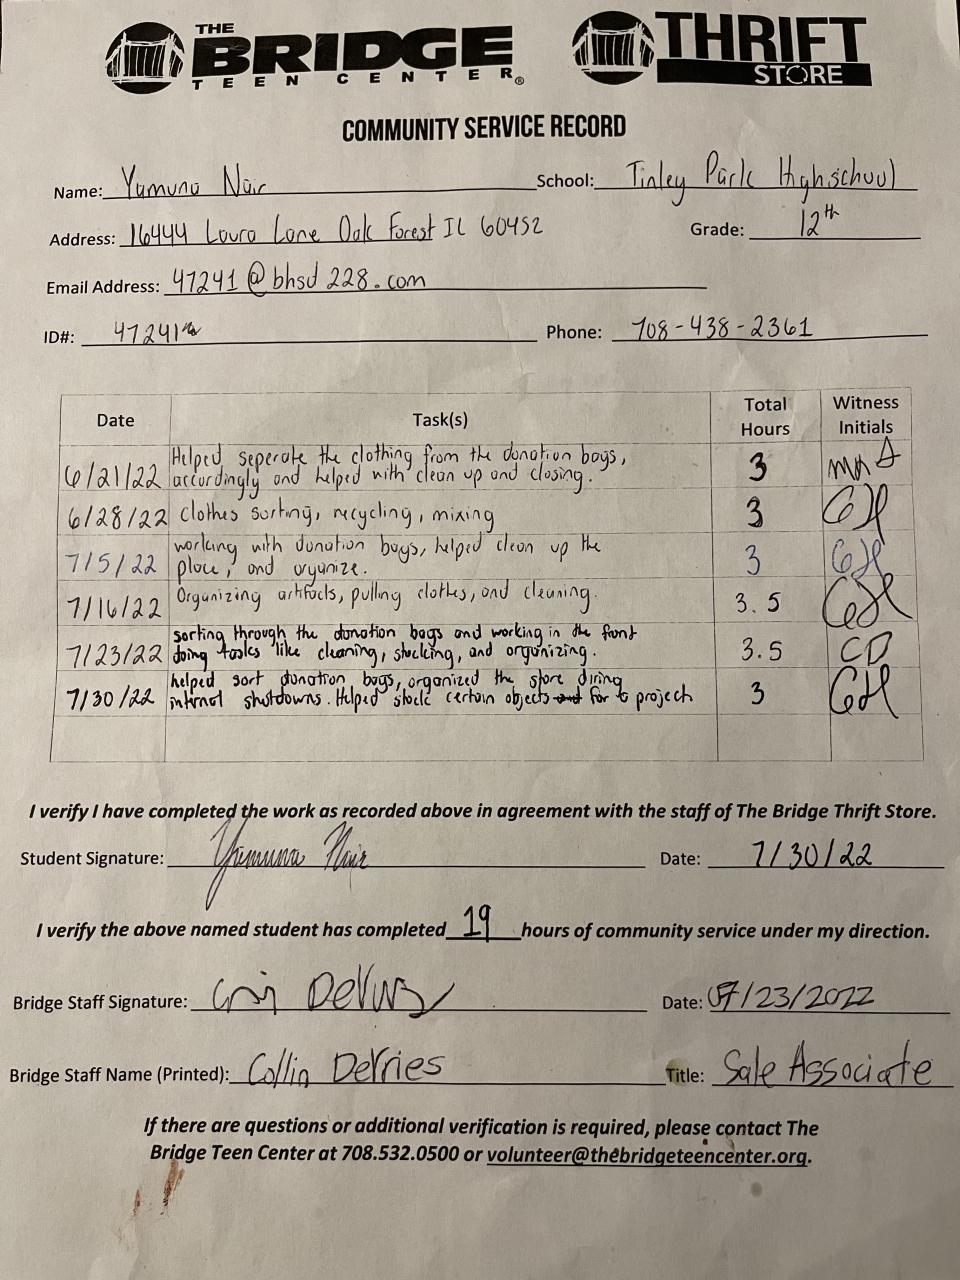 THE BRIDGE TEEN CENTER® THRIFT STORE
COMMUNITY SERVICE RECORD
Name: Yamuna Nair School: Tinley Park Highschool
Address: 16444 Laura Lane Oak Forest IL 60452 Grade: 12th
Email Address: 47241@bhsd228.com
ID#: 47241 Phone: 708-438-2361
Date Task(s) Total Hours Witness Initials
6/21/22 Helped seperate the clothing from the donation bags,
accordingly and helped with clean up and closing. 3
6/28/22 clothes sorting, recycling, mixing 3 GH
7/5/22 working with donation bags, helped clean up the
place, and organize. 3 GH
7/16/22 Organizing artifacts, pulling clothes, and cleaning. 3.5 GH
7/23/22 sorting through the donation bags and working in the front
doing tasks like cleaning, stocking, and organizing. 3.5 CD
7/30/22 helped sort donation bags, organized the store diring
internet shutdowns. Helped stock certain objects for project 3 GH
I verify I have completed the work as recorded above in agreement with the staff of The Bridge Thrift Store.
Student Signature: Yamuna Nair Date: 7/30/22
I verify the above named student has completed 19 hours of community service under my direction.
Bridge Staff Signature: Date: 07/23/2022
Bridge Staff Name (Printed): Collin DeVries Title: Sale Associate
If there are questions or additional verification is required, please contact The
Bridge Teen Center at 708.532.0500 or volunteer@thebridgeteencenter.org.